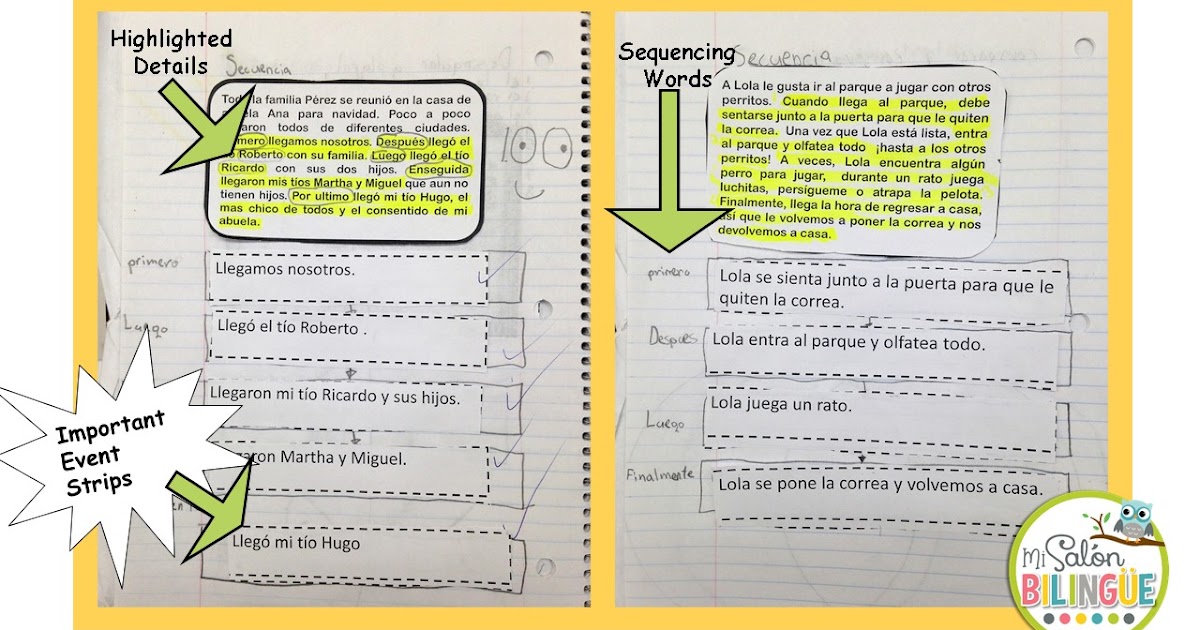 Highlighted
Details
Secuencia
la familia Pérez se reunió en la casa de
Ana para navidad. Poco a poco
todos de diferentes ciudades.
llegamos nosotros. Después llegó el
Roberto con su familia. Luego llegó el tío
Ricardo con sus dos hijos. Enseguida
llegaron mis tíos Martha y Miguel que aun no
tienen hijos. Por ultimo llegó mi tío Hugo, el
mas chico de todos y el consentido de mi
abuela.
100
primero
Llegamos nosotros.
Luego
Llegó el tío Roberto .
Llegaron mi tío Ricardo y sus hijos.
Martha y Miguel.
Llegó mi tío Hugo
Important
Event
Strips
Sequencing
Words
Secuencia
A Lola le gusta ir al parque a jugar con otros
perritos. Cuando llega al parque, debe
sentarse junto a la puerta para que le quiten
la correa. Una vez que Lola está lista, entra
al parque y olfatea todo ¡hasta a los otros
perritos! A veces, Lola encuentra algún
perro para jugar, durante un rato juega
luchitas, persígueme o atrapa la pelota.
Finalmente, llega la hora de regresar a casa,
así que le volvemos a poner la correa y nos
devolvemos a casa.
primero
Lola se sienta junto a la puerta para que le
quiten la correa.
Después
Lola entra al parque y olfatea todo.
Luego
Lola juega un rato.
Finalmente
Lola se pone la correa y volvemos a casa.
Mi Salón
BILINGÜE